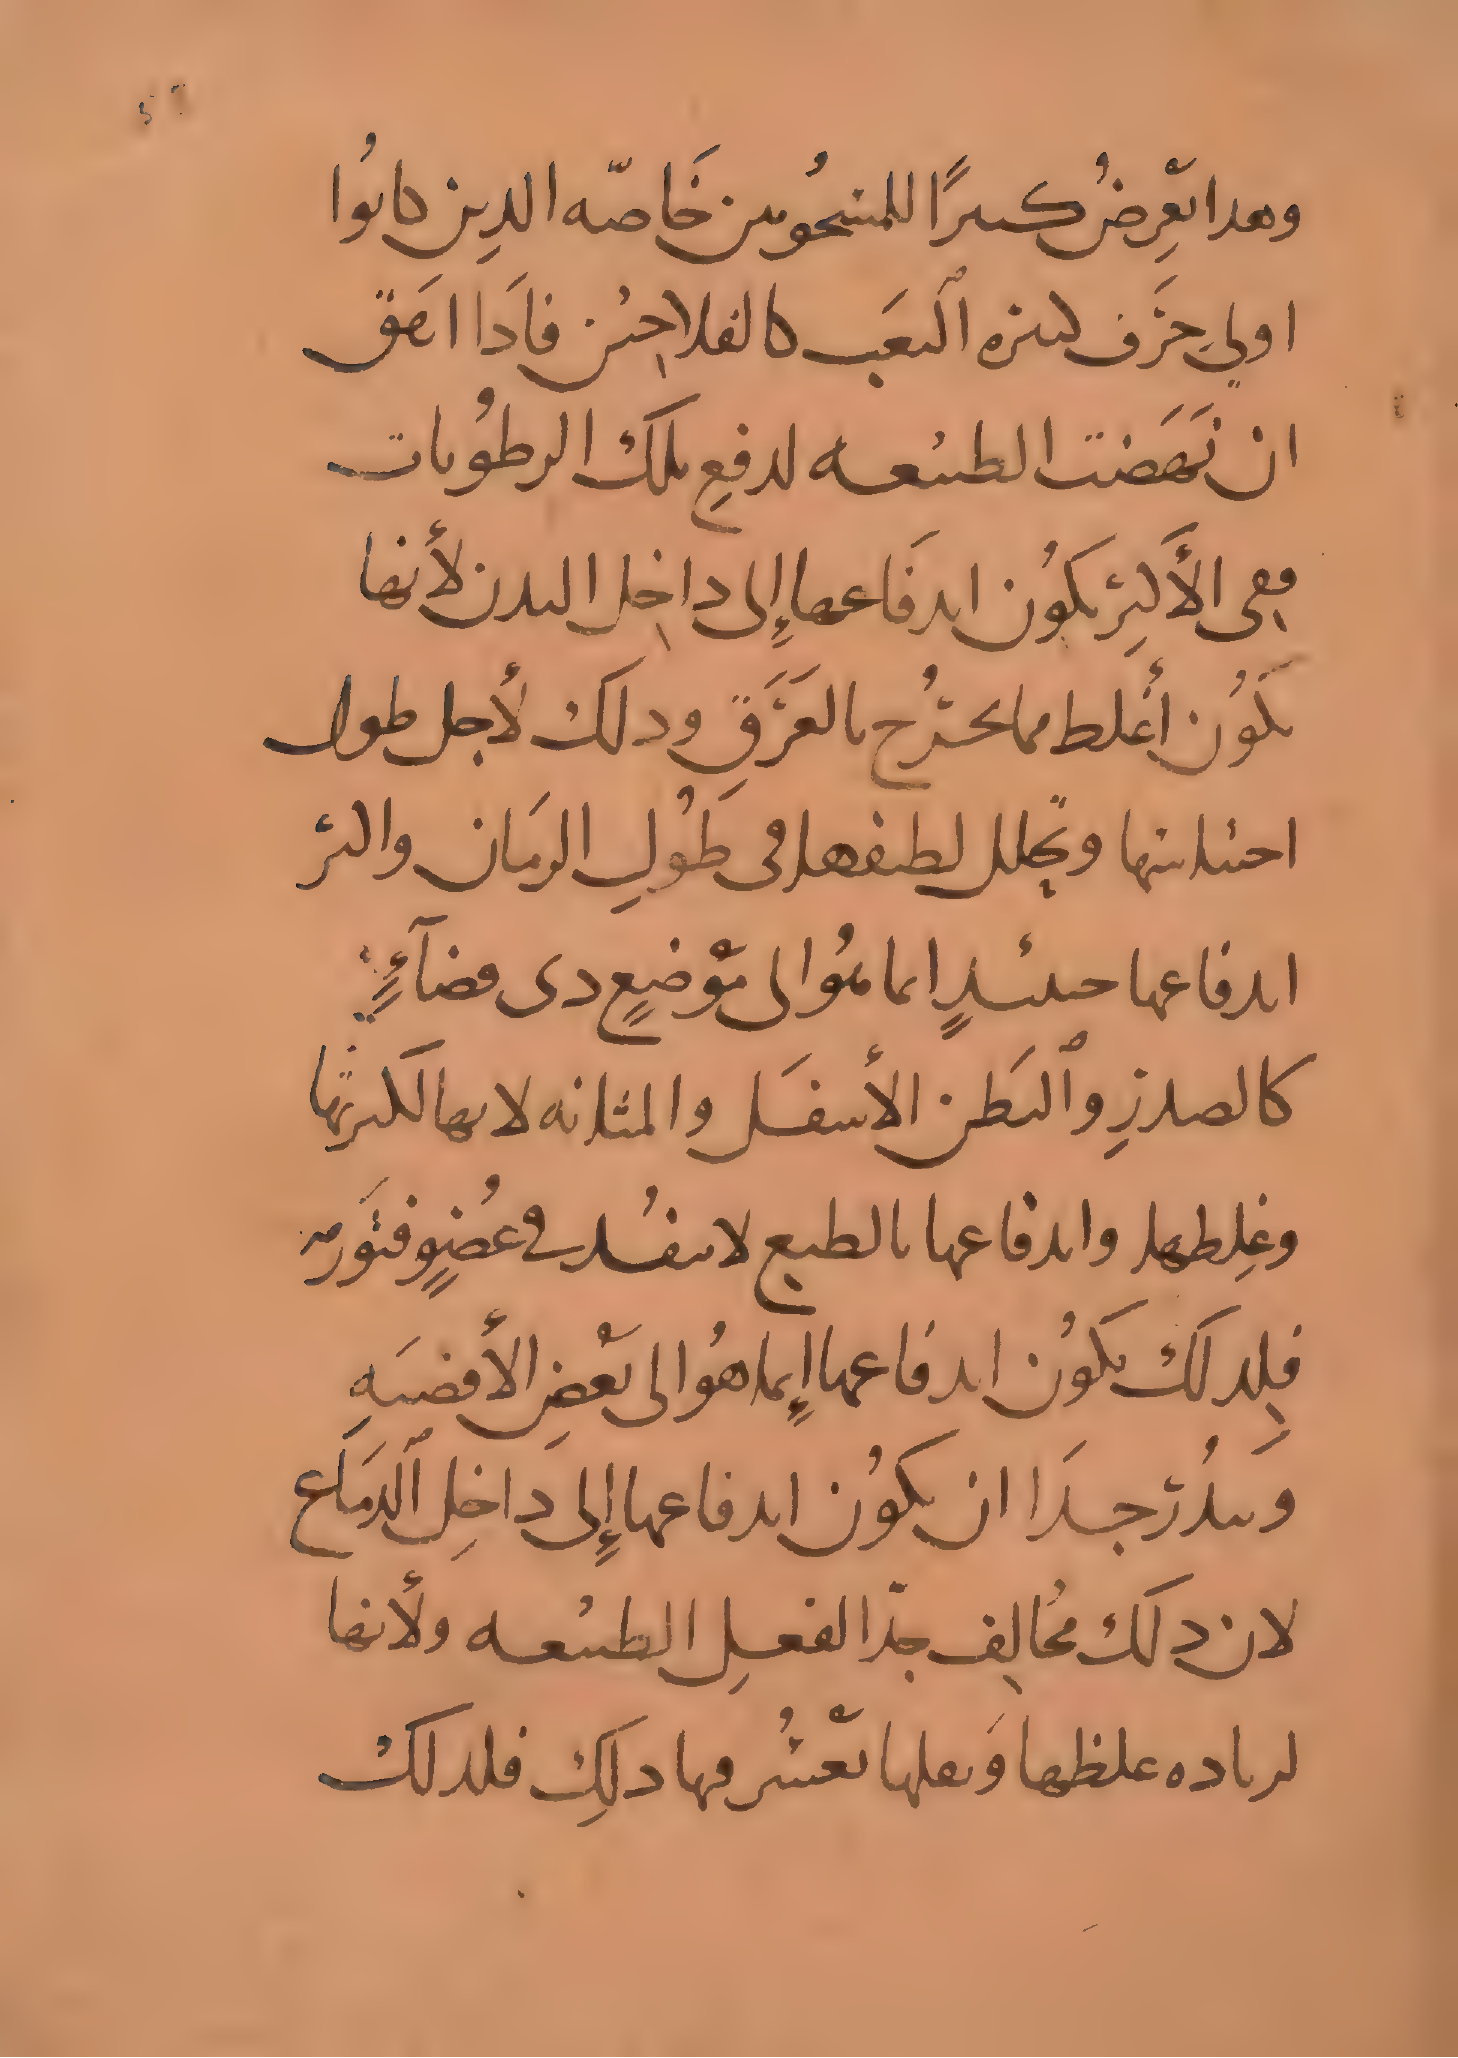 وهذا يعرض كثيرًا للمشيخومين خاصّه الدين كانوا
اولي حرف كثيره التعب كالفلاحين فاذا اتفق
ان نهضت الطبيعه لدفع تلك الرطوبات
ففى الأكثر يكون اندفاعها إلى داخل البدن لأنها
تكون أغلط مما يخرج بالعرق ودلك لأجل طول
احتباسها وتحلل لطيفها فى طول الزمان واكثر
اندفاعها حينئدٍ انما هو الى موضعٍ دى فضآءٍ
كالصدر والبطن الأسفل والمثانه لانها لكثرتها
وغلطها واندفاعها بالطبع لا ينفد في عضوٍ فتورمه
فلدلك يكون اندفاعها إنما هو الى بعض الأفضيه
ويندر جدا ان يكون اندفاعها إلى داخل الدماغ
لان دلك مخالف جدّا لفعل الطبيعه ولأنها
لزياده غلظها وثقلها يعسر فيها دلك فلدلك